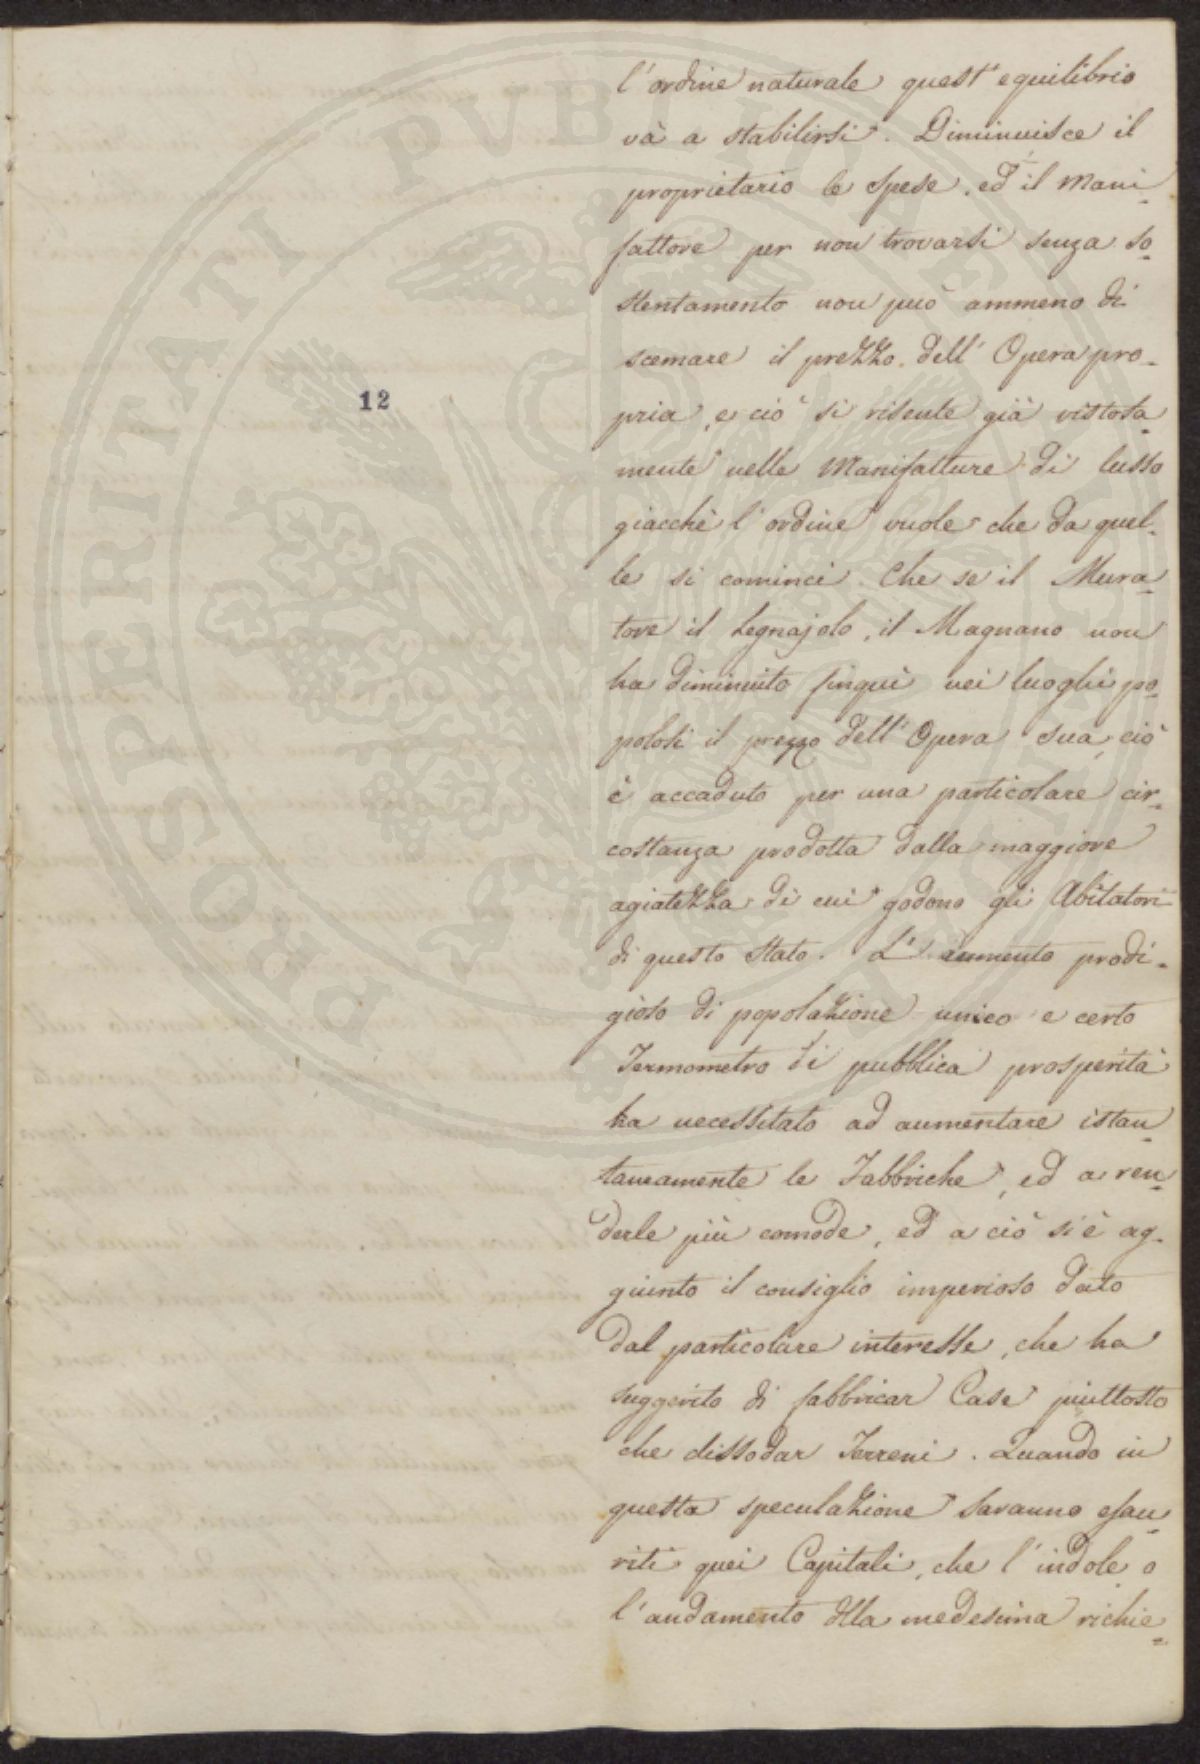 l'ordine naturale quest'equilibrio
và a stabilirsi. Diminuisce il
proprietario le spese, ed il Mani-
fattore per non trovarsi senza so-
stentamento non può ammeno di
scemare il prezzo dell'Opera pro-
pria, e ciò si risente già vistosa-
mente nelle Manifatture di lusso
giacchè l'ordine vuole che da quel-
le si cominci. Che se il Mura-
tore il Legnajolo, il Magnano non
ha diminuito finquì nei luoghi po-
polosi il prezzo dell'Opera sua, ciò
è accaduto per una particolare cir-
costanza prodotta dalla maggiore
agiatezza di cui godono gli Abitatori
di questo Stato. L'aumento prodi-
gioso di popolazione unico e certo
Termometro di pubblica prosperità
ha necessitato ad aumentare istan-
taneamente le Fabbriche, ed a ren-
derle più comode, ed a ciò si è ag-
giunto il consiglio imperioso dato
dal particolare interesse, che ha
suggerito di fabbricar Case piuttosto
che dissodar Terreni. Quando in
questa speculazione saranno esau-
riti quei Capitali, che l'indole o
l'andamento della medesima richie-
12
PROSPERITATI PVBLICAE